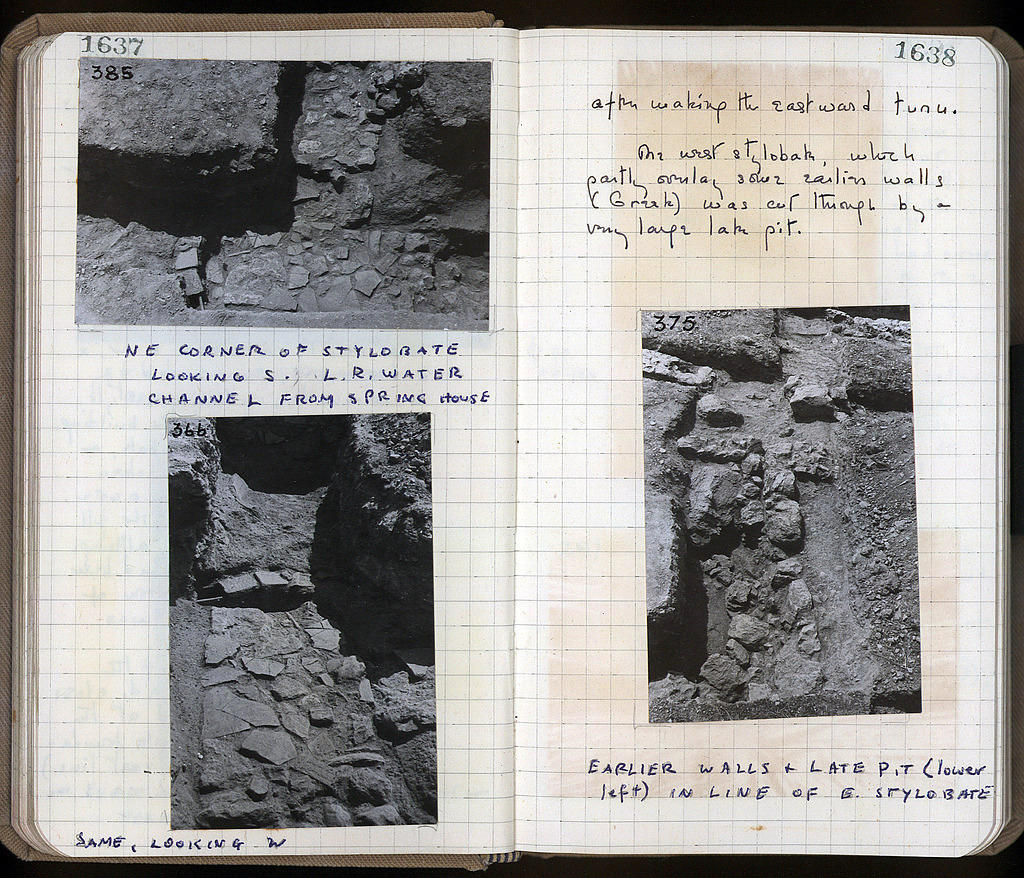 1637
385
NE CORNER OF STYLOBATE
LOOKING S. L.R. WATER
CHANNEL FROM SPRING HOUSE
366
SAME, LOOKING W
1638
after making the eastward turn.
The west stylobate, which
partly overlay some earlier walls
(Greek) was cut through by a
very large late pit.
375
EARLIER WALLS + LATE PIT (lower
left) IN LINE OF E. STYLOBATE